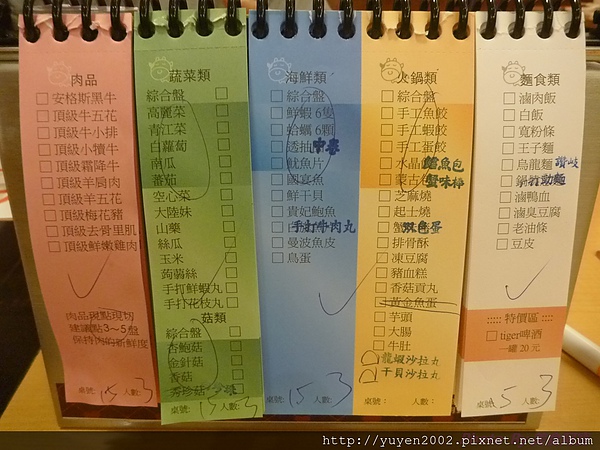 肉品
安格斯黑牛
頂級牛五花
頂級牛小排
頂級小犢牛
頂級霜降牛
頂級羊肩肉
頂級羊五花
頂級梅花豬
頂級去骨里肌
頂級鮮嫩雞肉
肉品現點現切
建議點3～5盤
保持肉的新鮮度
桌號: 15 人數: 3
蔬菜類
綜合盤
高麗菜
青江菜
白蘿蔔
南瓜
蕃茄
空心菜
大陸妹
山藥
絲瓜
玉米
蒟蒻絲
手打鮮蝦丸
手打花枝丸
菇類
綜合盤
杏鮑菇
金針菇
香菇
秀珍菇
桌號: 15 人數: 3
海鮮類
綜合盤
鮮蝦 6隻
蛤蠣 6顆
透抽 中卷
魷魚片
國宴魚
鮮干貝
貴妃鮑魚
手打牛肉丸
曼波魚皮
鳥蛋
桌號: 15 人數: 3
火鍋類
綜合盤
手工魚餃
手工蝦餃
手工蛋餃
水晶 鱈魚包
蒙古包 蟹味棒
芝麻燒
起士燒
蟹 双色蛋
排骨酥
凍豆腐
豬血糕
香菇貢丸
黃金魚蛋
芋頭
大腸
牛肚
龍蝦沙拉丸
干貝沙拉丸
桌號: 人數:
麵食類
滷肉飯
白飯
寬粉條
王子麵
烏龍麵 讚岐
鍋 打動麵
滷鴨血
滷臭豆腐
老油條
豆皮
::::: 特價區 :::::
tiger啤酒
一罐 20 元
桌號: 15 人數: 3
http://yuyen2002.pixnet.net/album